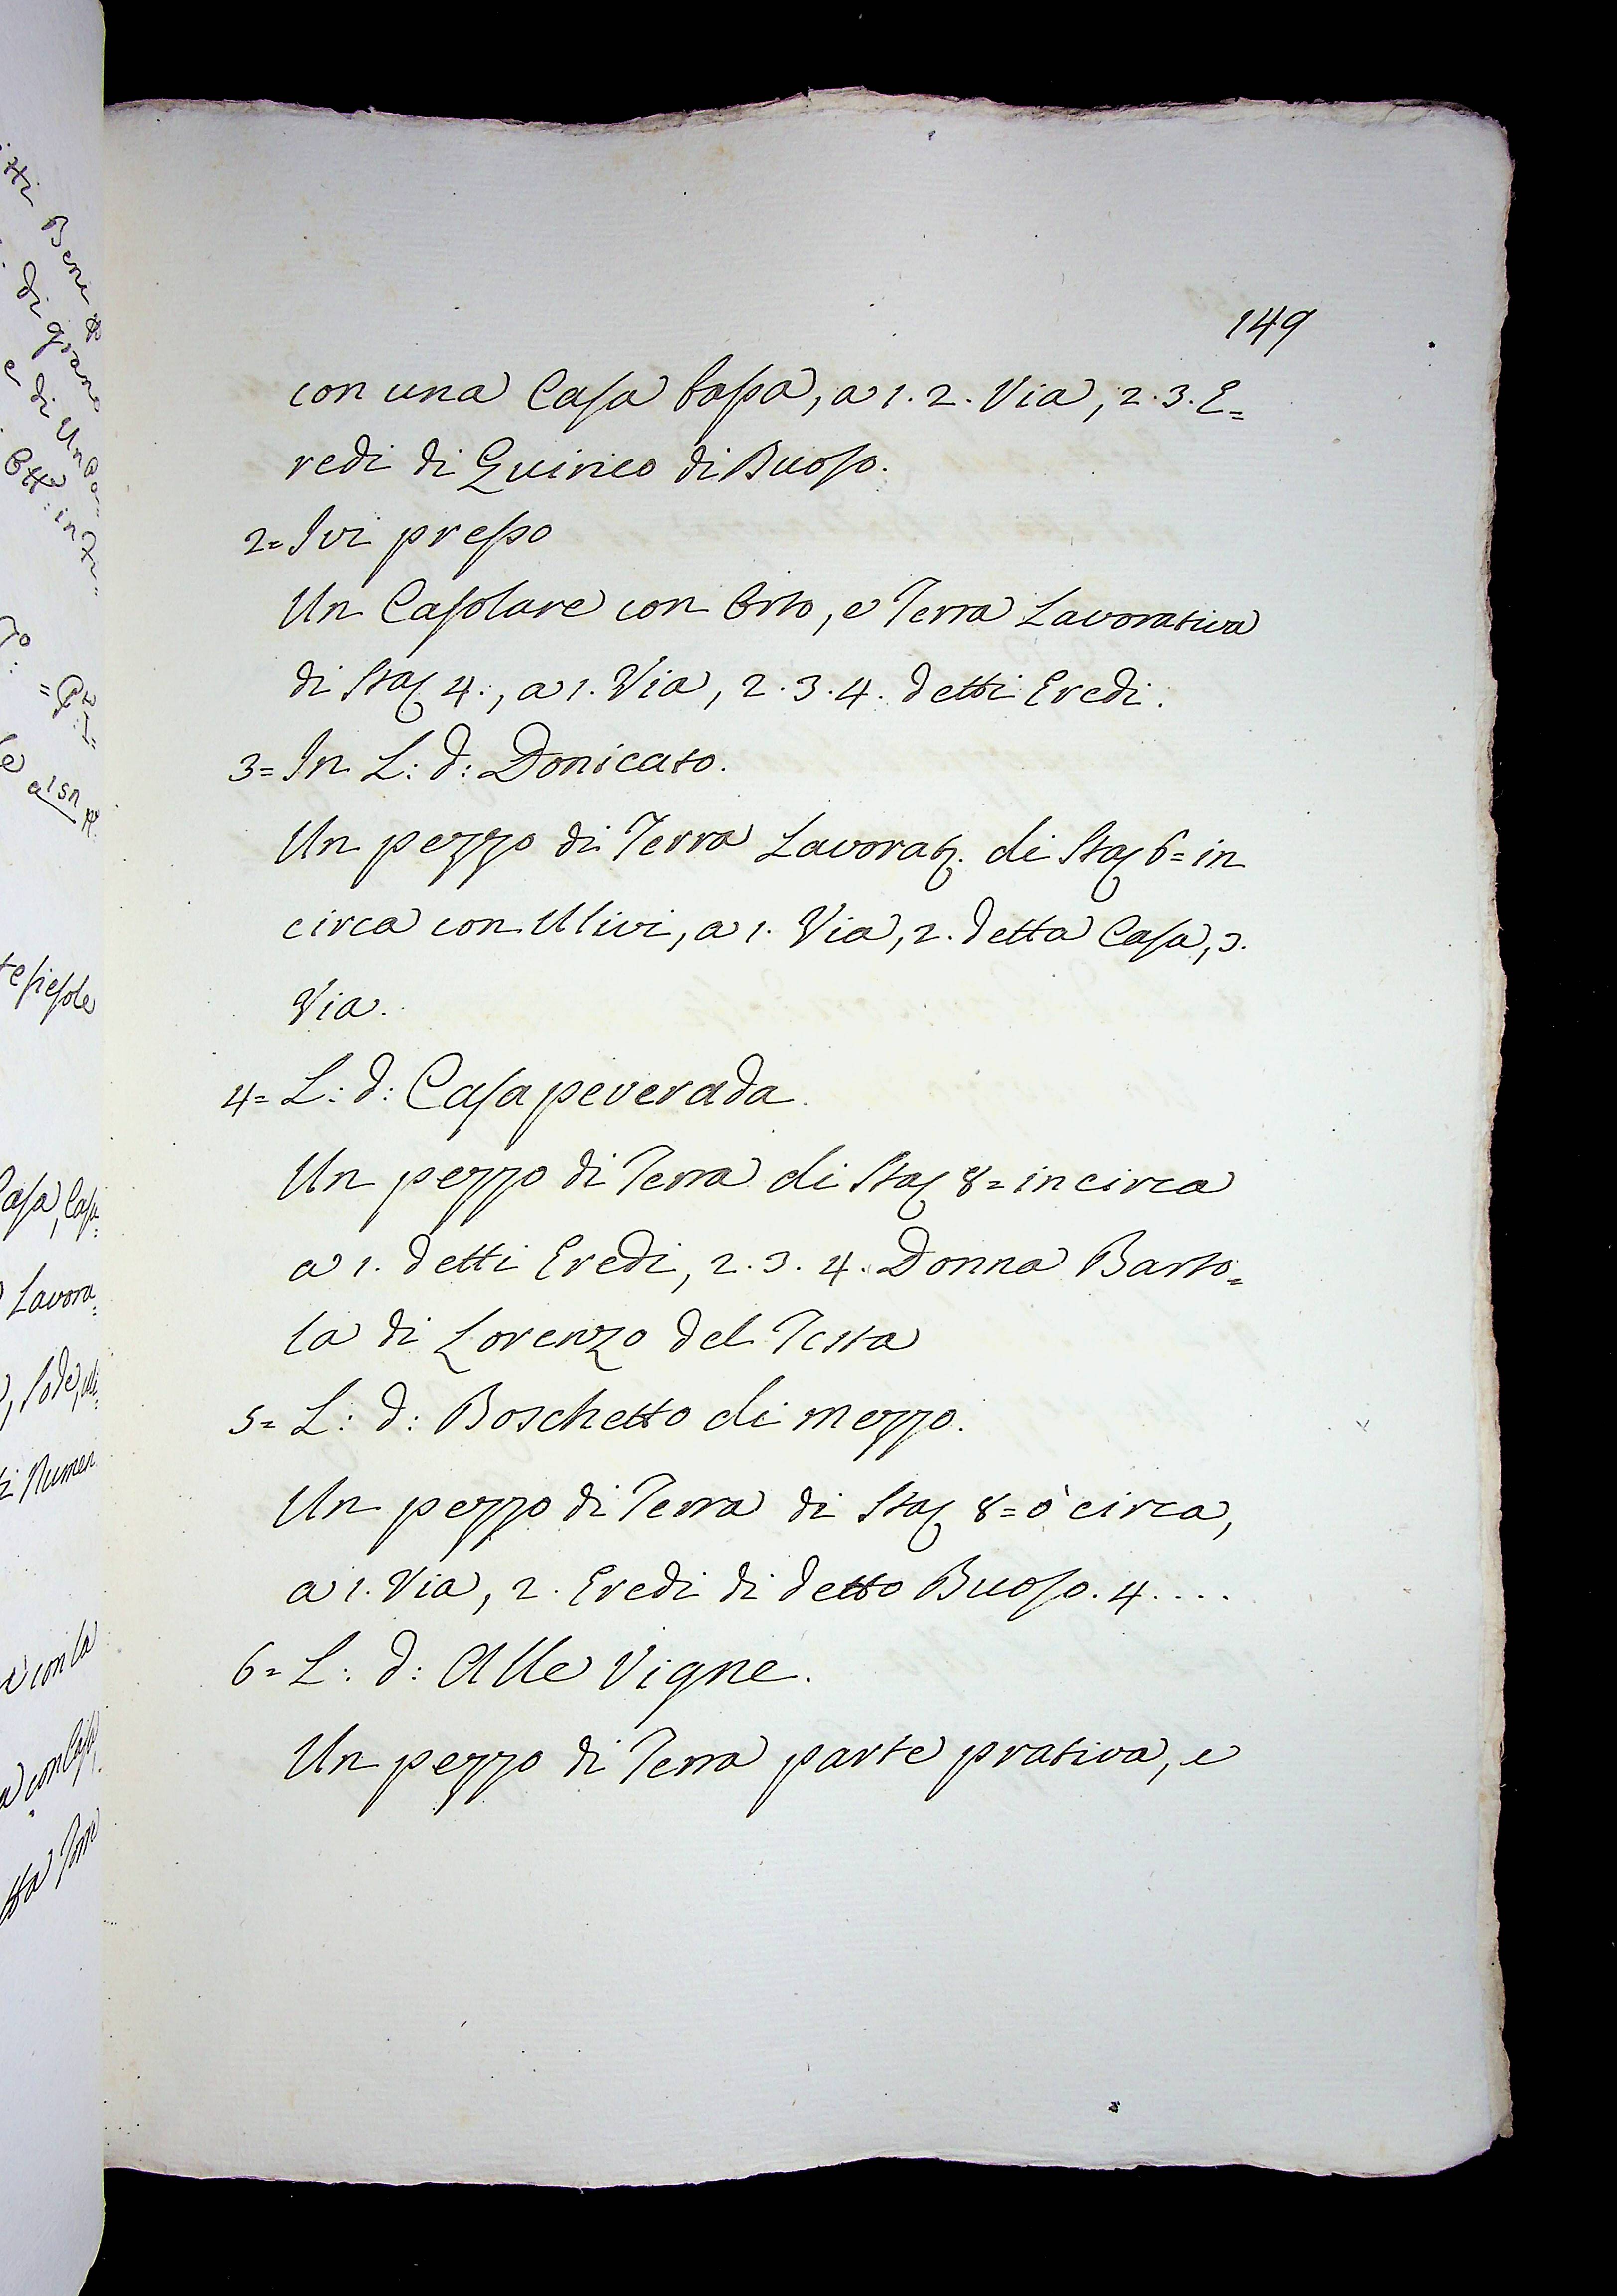 149
con una Casa bassa, a 1. 2. Via, 2. 3. E=
redi di Quirico di Buoso.
2= Ivi presso
Un Casolare con Orto, e Terra Lavorativa
di Sta; 4:, a 1. Via, 2. 3. 4. detti Eredi.
3= In L: d: Donicato.
Un pezzo di Terra Lavorat; di Sta; 6= in
circa con Ulivi, a 1. Via, 2. detta Casa, 3.
Via.
4= L: d: Casa peverada.
Un pezzo di Terra di Sta; 8= incirca
a 1. detti Eredi, 2. 3. 4. Donna Barto=
la di Lorenzo del Testa
5= L: d: Boschetto di mezzo.
Un pezzo di Terra di Sta; 8= ò circa,
a 1. Via, 2. Eredi di detto Buoso. 4....
6= L: d: Alle Vigne.
Un pezzo di Terra parte prativa, e